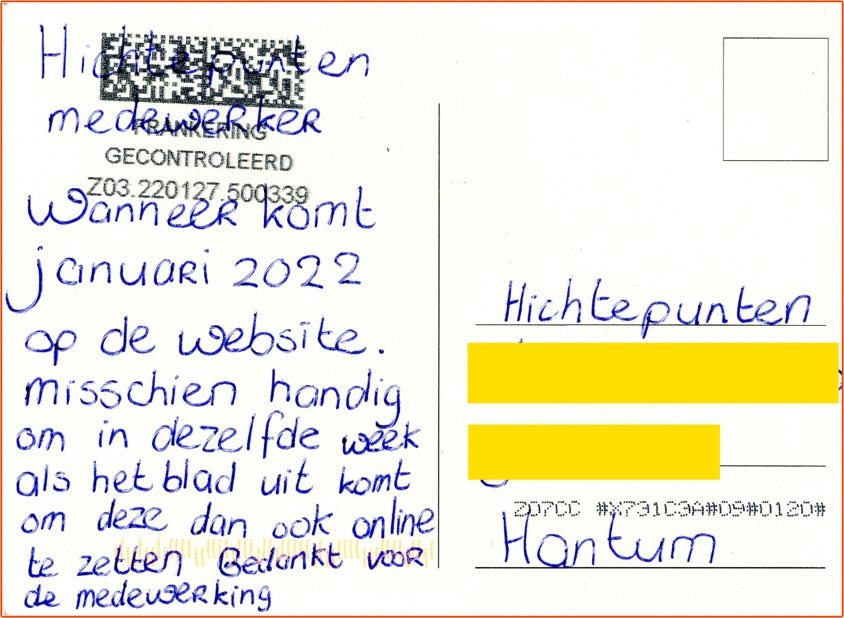 Hichtepunten
medewerker
FRANKERING
GECONTROLEERD
Z03.220127.500339
Wanneer komt
januari 2022
op de website.
misschien handig
om in dezelfde week
als het blad uit komt
om deze dan ook online
te zetten Bedankt voor
de medewerking
Hichtepunten
2D7CC #X731C3A#09#0120#
Hantum